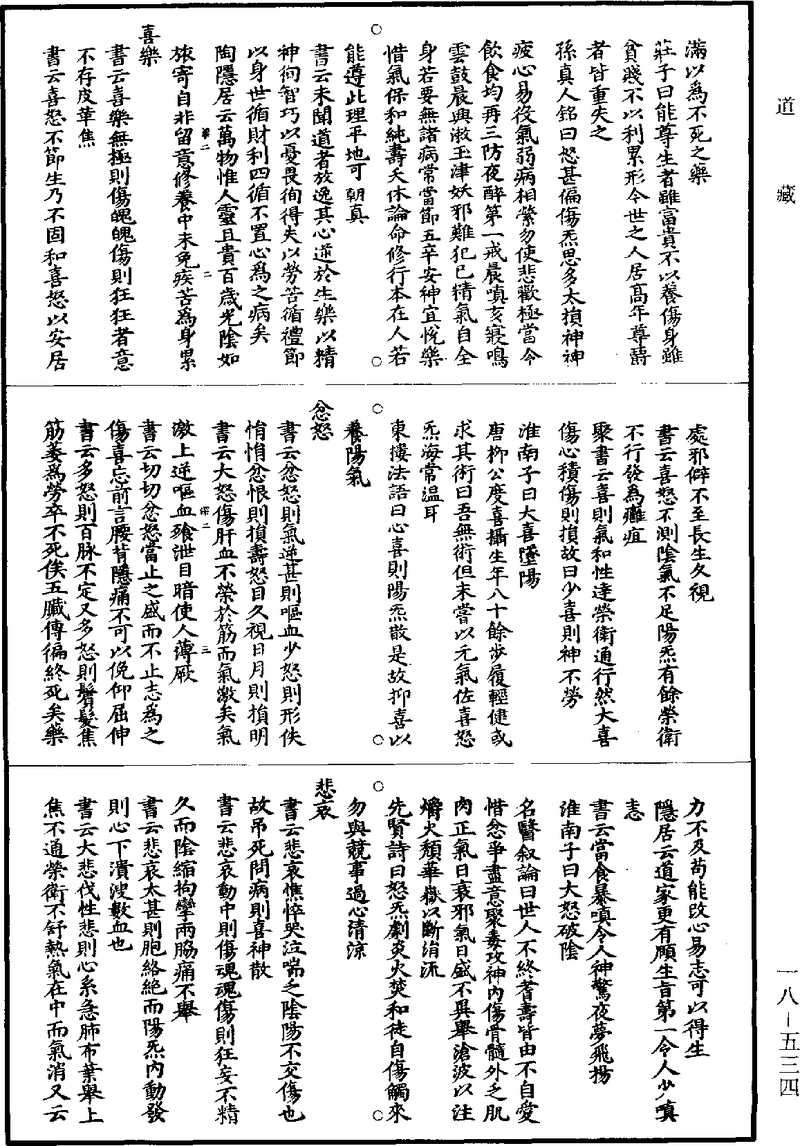 道藏
滿以爲不死之藥
莊子曰能尊生者雖富貴不以養傷身雖
貧賤不以利累形今世之人居髙年尊𣝛
者皆重失之
孫真人銘曰怒甚偏傷炁思多太損神神
疲心易役氣弱病相縈勿使悲歡極當令
飲食均再三防夜醉第一戒晨嗔亥寢鳴
雲鼓晨興漱玉津妖邪難犯已精氣自全
身若要無諸病常當節五辛安神宜恱樂
惜氣保和純壽夭休論命修行本在人若
能遵此理平地可朝真
書云未聞道者放逸其心逆於生樂以精
神徇智巧以憂畏徇得失以勞苦循禮節
以身世循財利四循不置心爲之病矣
陶隱居云萬物惟人靈且貴百歳光陰如
旅寄自非留意修養中未免疾苦爲身累
喜樂
書云喜樂無極則傷魄魄傷則狂狂者意
不存皮革焦
書云喜怒不節生乃不固和喜怒以安居
處邪僻不至長生久視
書云喜怒不測陰氣不足陽炁有餘榮衛
不行發爲癰疽
聚書云喜則氣和性達榮衛通行然大喜
傷心積傷則損故曰少喜則神不勞
淮南子曰大喜墜陽
唐柳公度喜攝生年八十餘步履輕健或
求其術曰吾無術但未嘗以元氣佐喜怒
炁海常温耳
東樓法語曰心喜則陽炁散是故抑喜以
養陽氣
忿怒
書云忿怒則氣逆甚則嘔血少怒則形佚
悁悁忿恨則損壽怒目久視日月則損明
書云大怒傷肝血不榮於筋而氣激矣氣
激上逆嘔血飱泄目暗使人薄厥
書云切切忿怒當止之盛而不止志爲之
傷喜忘前言腰背隱痛不可以俛仰屈伸
書云多怒則百脉不定又多怒則鬢髮焦
筋萎爲勞卒不死俟五臓傳徧終死矣藥
力不及苟能改心易志可以得生
隱居云道家更有頤生旨第一令人少嗔
恚
書云當食暴嗔令人神驚夜夢飛揚
淮南子曰大怒破陰
名醫叙論曰世人不終耆壽皆由不自愛
惜忿爭盡意聚毒攻神内傷骨髓外乏肌
肉正氣日衰邪氣日盛不異舉滄波以注
爝火頽華嶽以斷涓流
先賢詩曰怒炁劇炎火焚和徒自傷觸來
勿與競事過心清涼
悲哀
書云悲哀憔悴哭泣喘乏陰陽不交傷也
故吊死問病則喜神散
書云悲哀動中則傷魂魂傷則狂妄不精
久而陰縮拘攣兩脇痛不舉
書云悲哀太甚則胞絡絶而陽炁内動發
則心下潰溲數血也
書云大悲伐性悲則心系急肺布葉舉上
焦不通榮衛不舒熱氣在中而氣消又云
一八－五三四